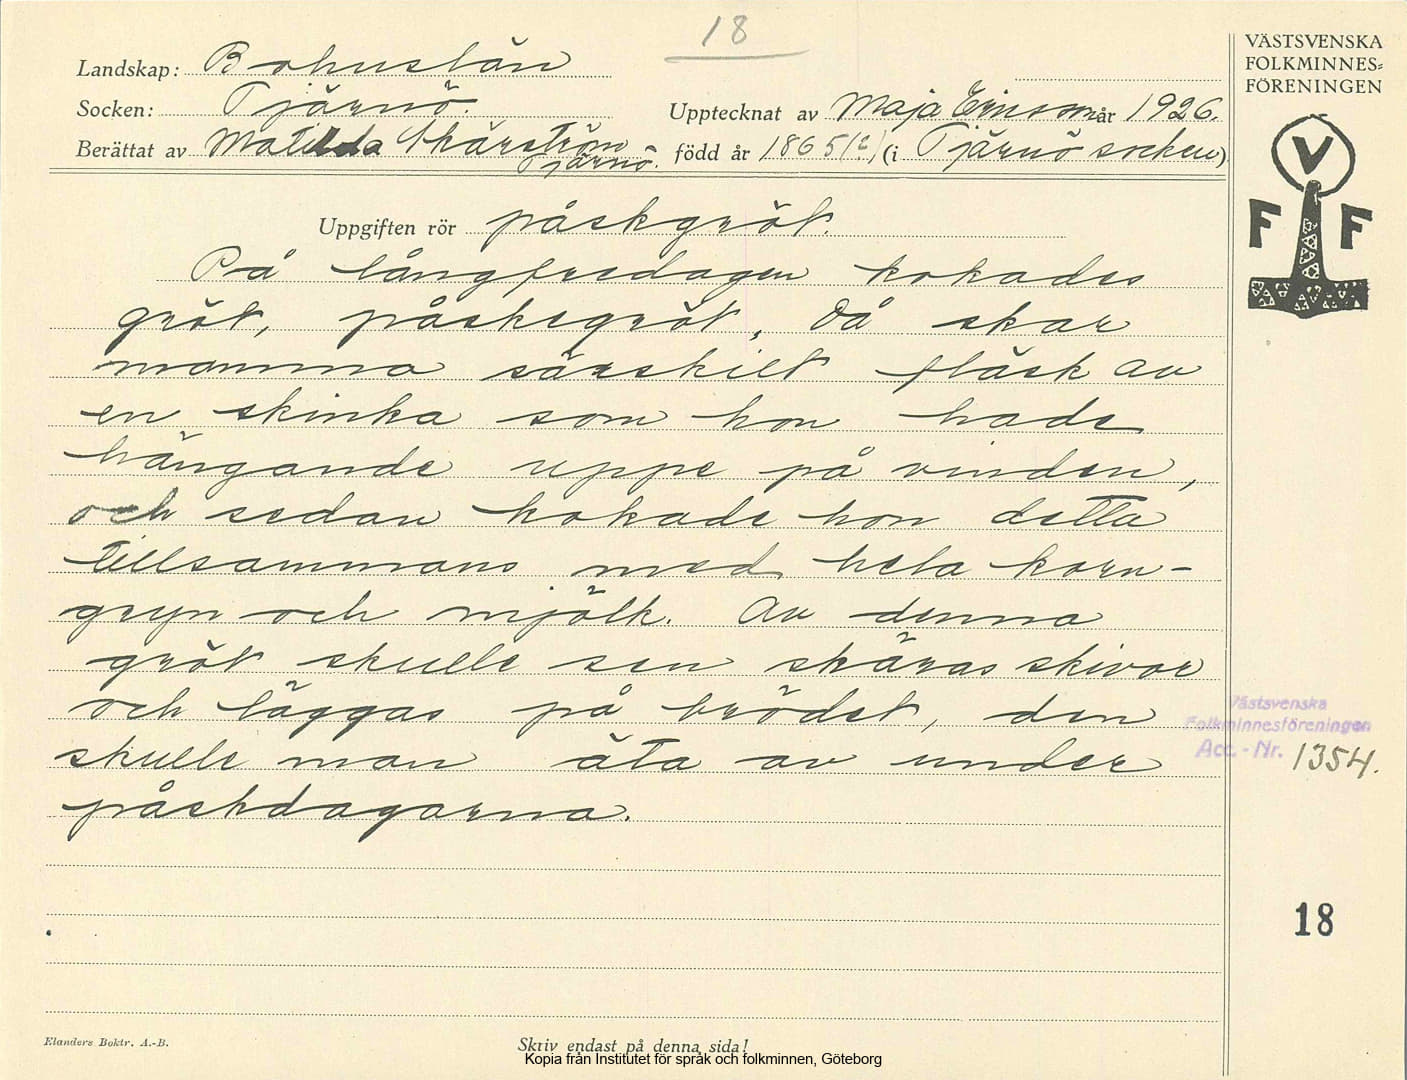 18
VÄSTSVENSKA
FOLKMINNES=
FÖRENINGEN
Landskap: Bohuslän
Socken: Tjärnö.
Upptecknat av Maja Ericson år 1926.
Berättat av Matilda Skärström Tjärnö. född år 1865(?) (i Tjärnö socken)
V
F F
Uppgiften rör påskgröt.
På långfredagen kokades
gröt, påskegröt. Då skar
mamma särskilt fläsk av
en skinka som hon hade
hängande uppe på vinden,
och sedan kokade hon detta
tillsammans med hela korn-
gryn och mjölk. Av denna
gröt skulle sen skäras skivor
och läggas på brödet, den
skulle man äta av under
påskdagarna.
Västsvenska
Folkminnesföreningen
Acc.-Nr. 1354.
18
Elanders Boktr. A.-B.
Skriv endast på denna sida!
Kopia från Institutet för språk och folkminnen, Göteborg